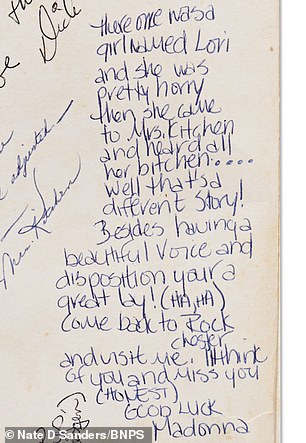 a
Dick
There once was a
girl named Lori
and she was
pretty horny
then she came
to Mrs. Kitchen
and heard all
her bitchen....
well that's a
different story!
Besides having a
beautiful voice and
disposition your a
great lay! (HA, HA)
Come back to Rock
chester
and visit me. I'll think
of you and miss you
(HONEST)
GOOD LUCK
Madonna
adjusted
Mrs. Kitchen
© Nate D Sanders/BNPS